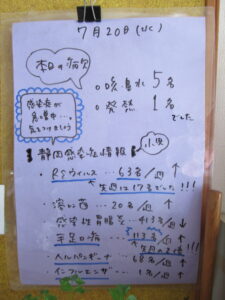 7月20日(火)
本日の病欠
○咳・鼻水 5名
○発熱 1名
でした
感染症が
急増中…
気をつけましょう
静岡感染症情報
小児
・RSウイルス…63名/週 ↑
先週は17名でした!!!
・溶連菌…20名/週 ↑
・感染性胃腸炎…413名/週 ↓
・手足口病…113名/週 ↑
先月の3倍!!!
・ヘルパンギーナ…68名/週 ↑
・インフルエンザ…1名/週 ↑